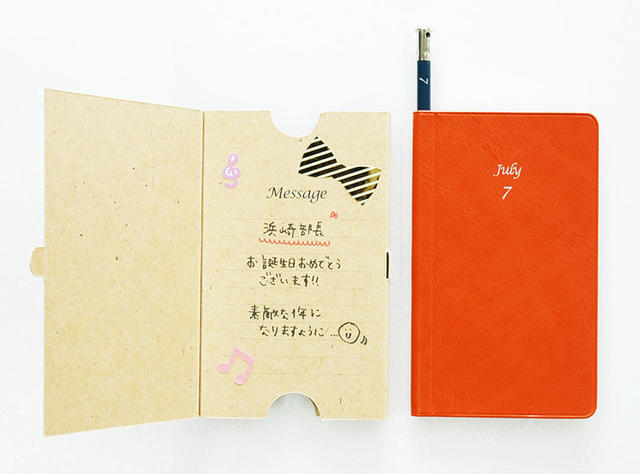 Message
浜崎部長
お誕生日おめでとう
ございます!!
素敵な1年に
なりますように…
7
July
7